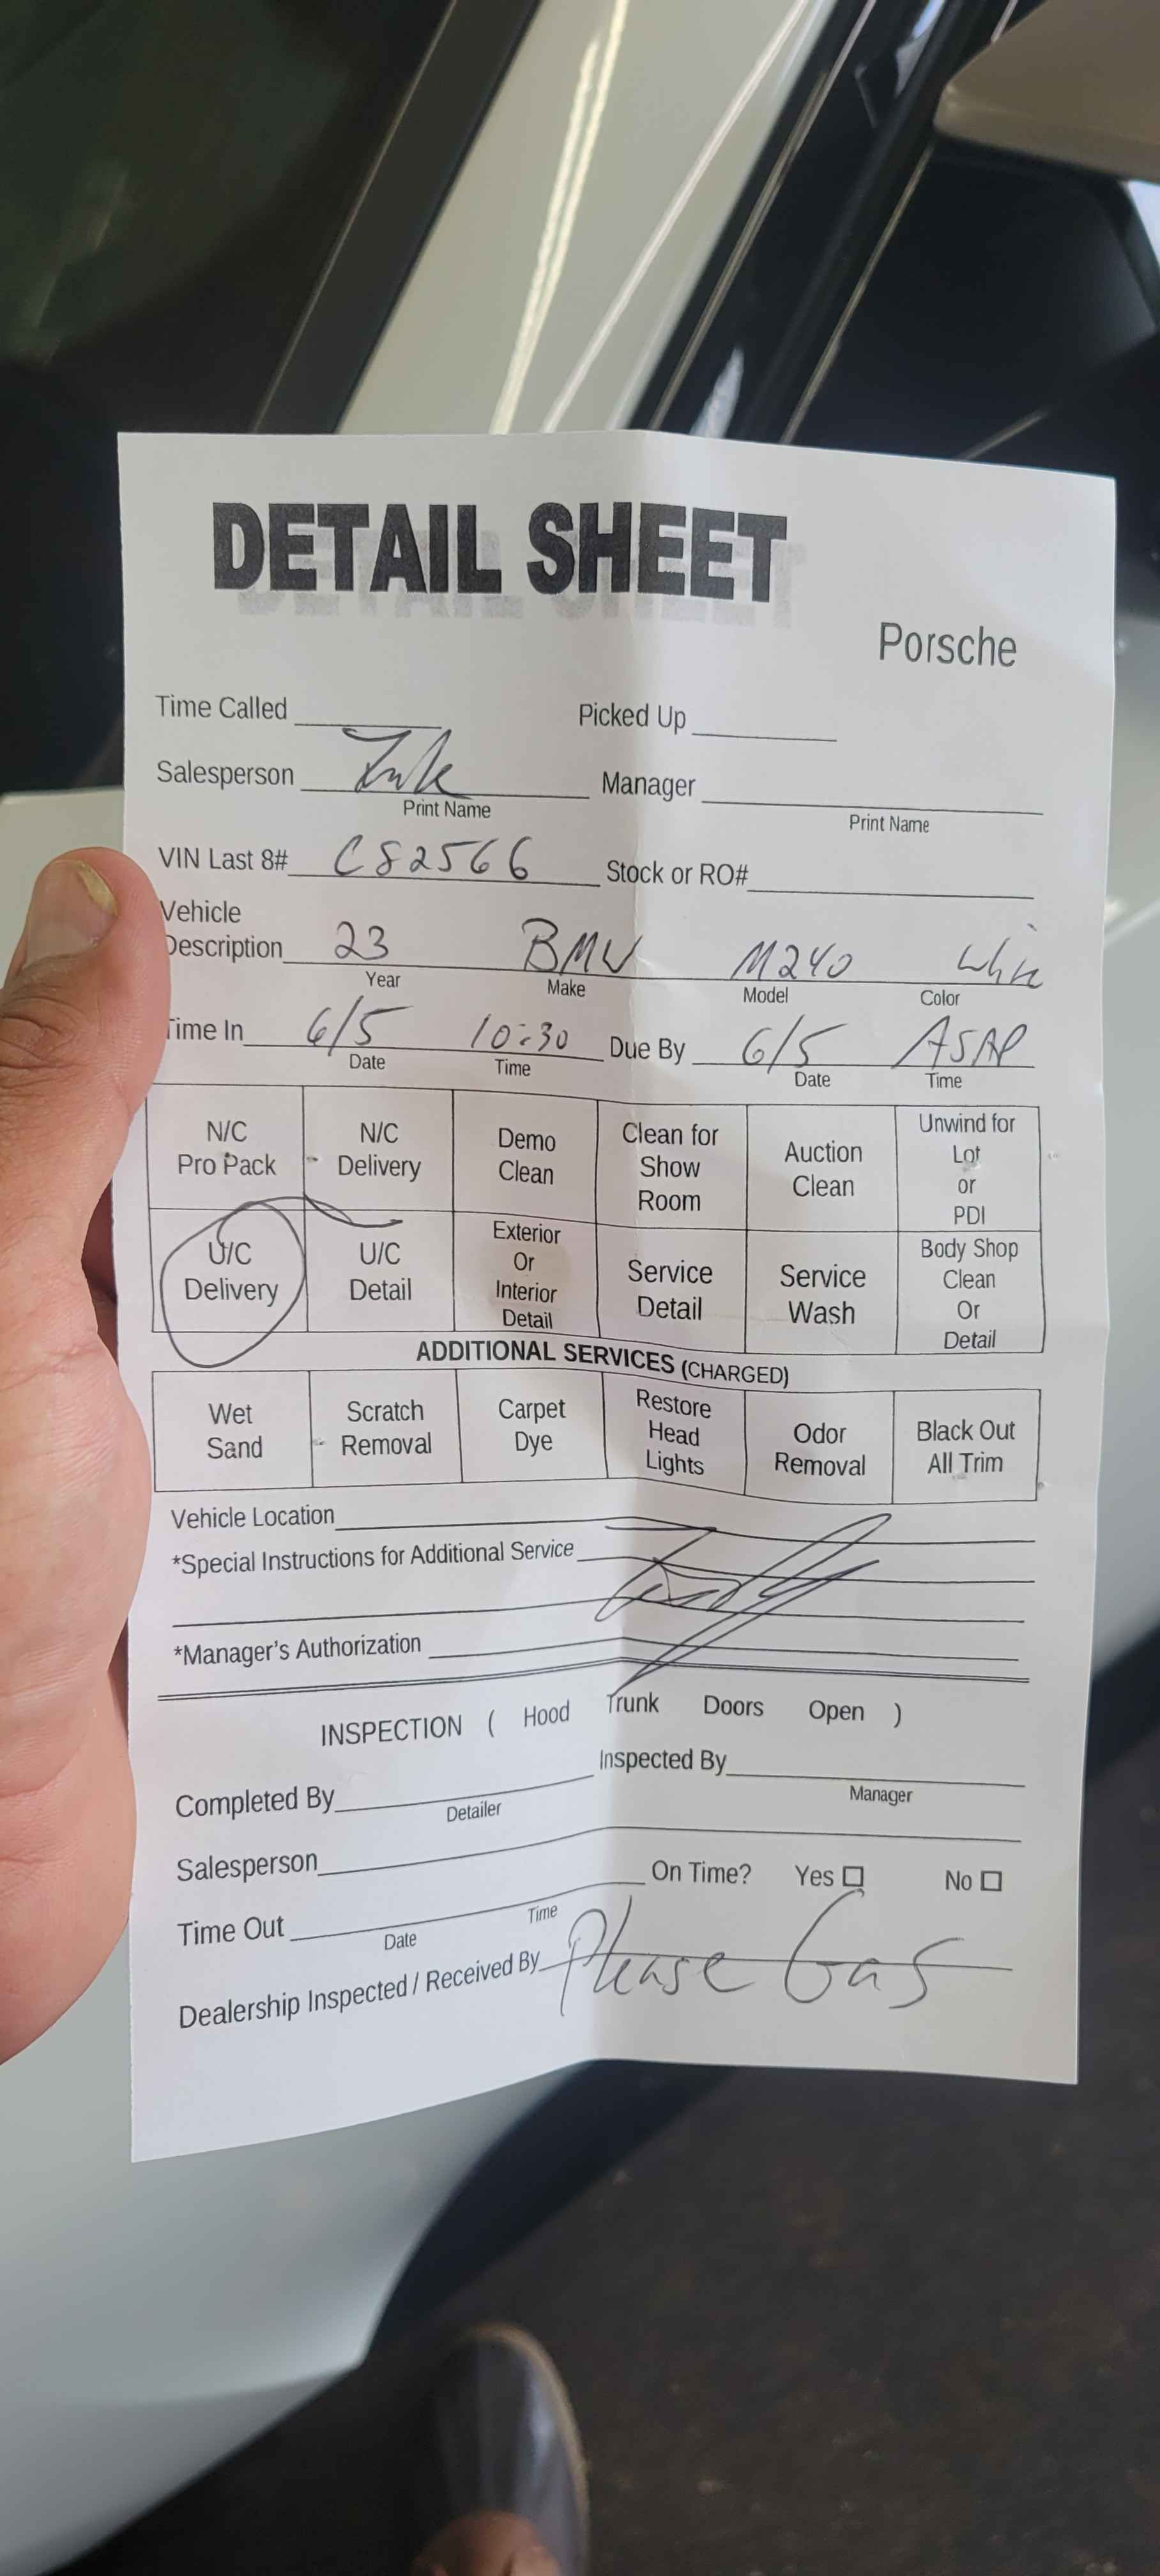 DETAIL SHEET
Porsche
Time Called Picked Up
Salesperson Manager
Print Name Print Name
VIN Last 8# C82566 Stock or RO#
Vehicle
Description 23 BMW M240
Year Make Model Color
Time In 6/5 10:30 Due By 6/5 ASAP
Date Time Date Time
N/C Pro Pack N/C Delivery Demo Clean Clean for Show Room Auction Clean Unwind for Lot or PDI
U/C Delivery U/C Detail Exterior Or Interior Detail Service Detail Service Wash Body Shop Clean Or Detail
ADDITIONAL SERVICES (CHARGED)
Wet Sand Scratch Removal Carpet Dye Restore Head Lights Odor Removal Black Out All Trim
Vehicle Location
*Special Instructions for Additional Service
*Manager's Authorization
INSPECTION ( Hood Trunk Doors Open )
Completed By Inspected By
Detailer Manager
Salesperson
On Time? Yes No
Time Out
Date Time
Dealership Inspected / Received By Please Gas